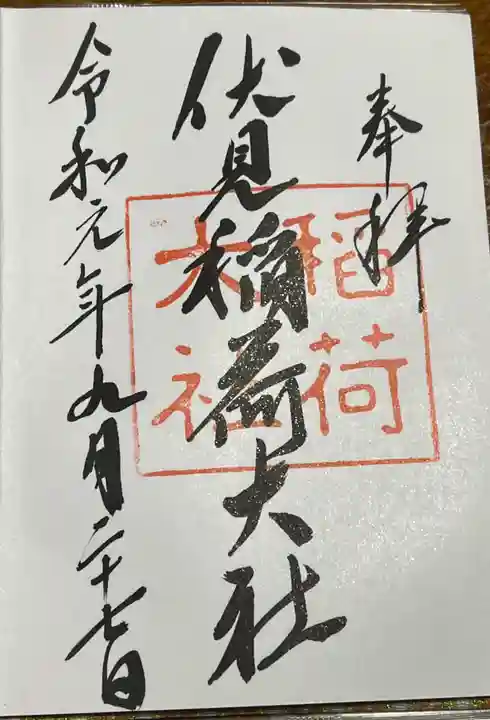 奉拝
伏見稲荷大社
稲荷
大社
令和元年九月二十七日